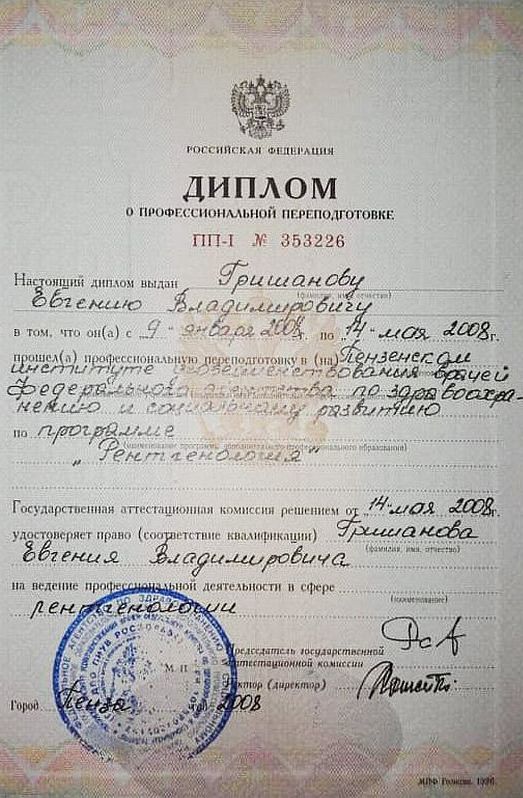 РОССИЙСКАЯ ФЕДЕРАЦИЯ
ДИПЛОМ
О ПРОФЕССИОНАЛЬНОЙ ПЕРЕПОДГОТОВКЕ
ПП-I № 353226
Настоящий диплом выдан Гришанову
(фамилия, имя, отчество)
Евгению Владимировичу
в том, что он(а) с „9" января 2008г. по „14" мая 2008г.
прошел(а) профессиональную переподготовку в (на) Пензенском
институте усовершенствования врачей
Федерального агентства по здравоохра-
нению и социальному развитию
по программе
(наименование программы дополнительного профессионального образования)
„Рентгенология"
Государственная аттестационная комиссия решением от „14" мая 2008г.
удостоверяет право (соответствие квалификации) Гришанова
(фамилия, имя, отчество)
Евгения Владимировича
на ведение профессиональной деятельности в сфере
(наименование)
рентгенологии
Председатель государственной
аттестационной комиссии
М. П.
Ректор (директор)
Город Пенза 2008
МПФ Гознака. 1996.